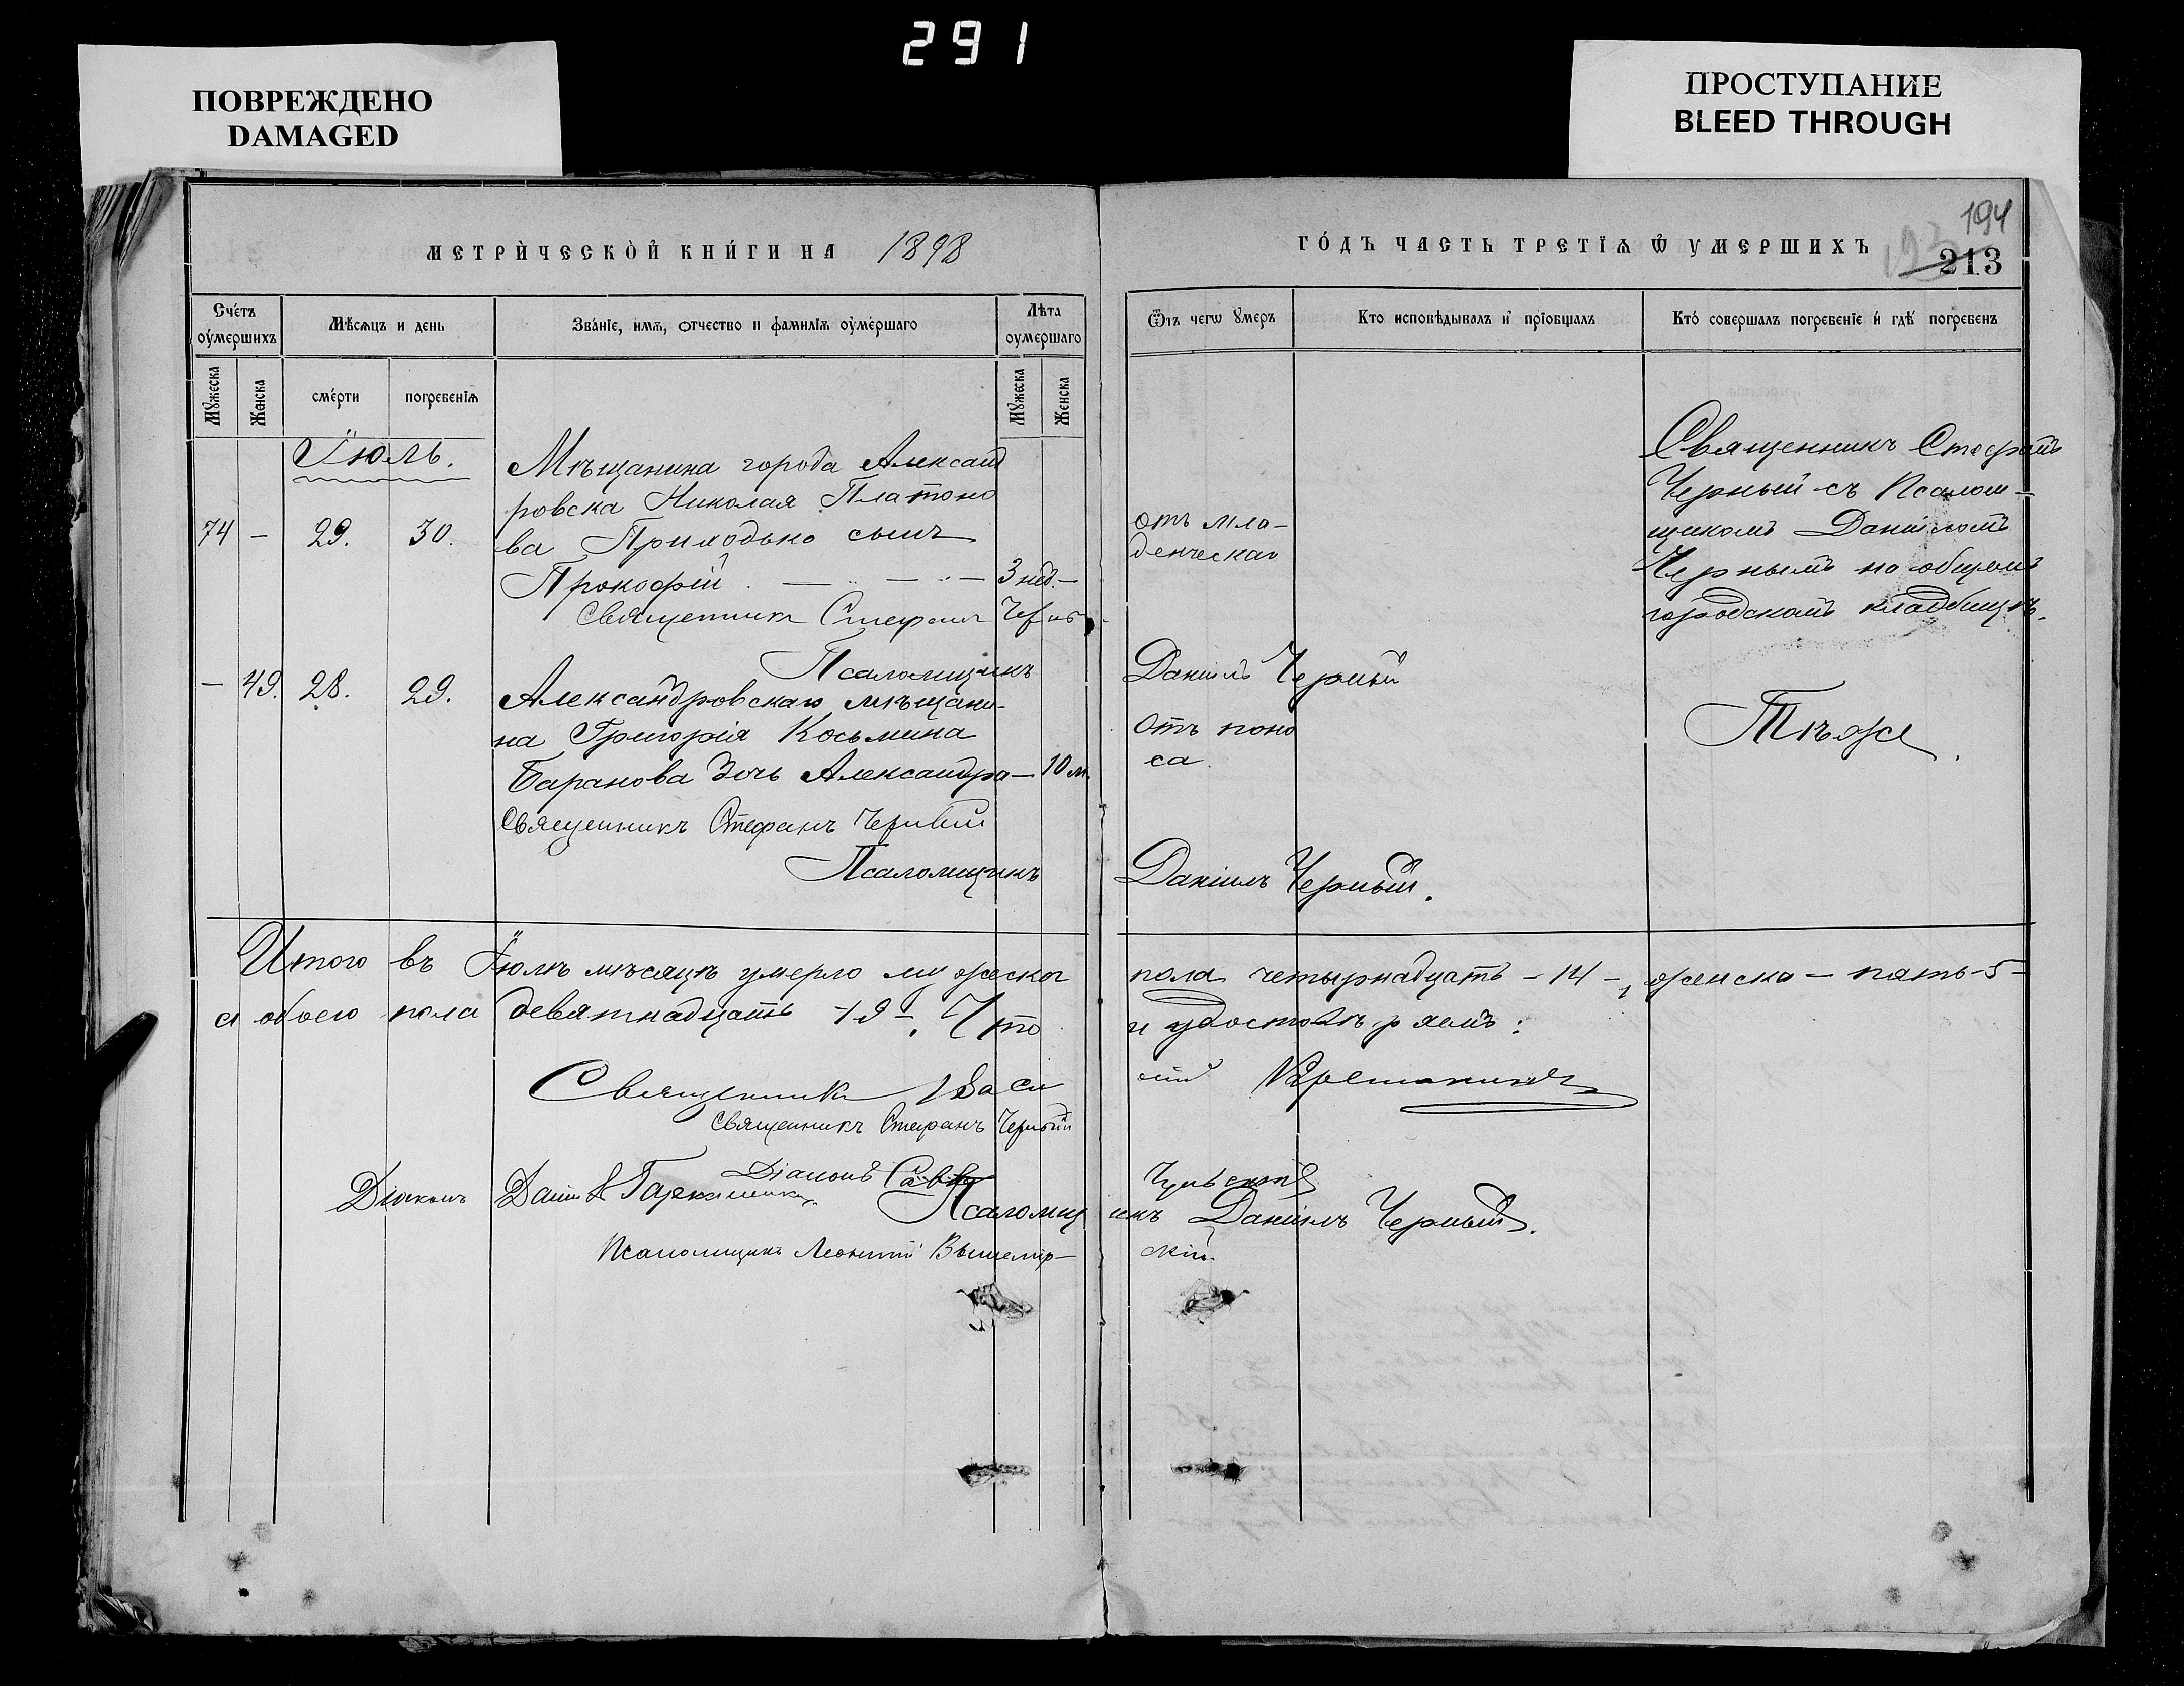 291
ПОВРЕЖДЕНО
DAMAGED
ПРОСТУПАНИЕ
BLEED THROUGH
МЕТРИЧЕСКОЙ КНИГИ НА 1898
ГОДЪ ЧАСТЬ ТРЕТІѦ Ѿ УМЕРШИХЪ
194
193
213
Счетъ оумершихъ
Мѣсѧцъ и день
Званіе, имѧ, отчество и фамиліѧ оумершаго
Лѣта оумершаго
Ѿтъ чегѡ ꙋмеръ
Кто исповѣдывалъ и пріобщалъ
Кто совершалъ погребеніе и гдѣ погребенъ
Мꙋжеска
Женска
смерти
погребеніѧ
Мꙋжеска
Женска
Іюль.
74 - 29. 30.
Мѣщанина города Александ
ровска Николая Платоно
ва Приходько сынъ
Прокофій
3 нед. -
отъ мла-
денческаго
Священникъ Стефанъ
Черный съ Псалом-
щикомъ Даніиломъ
Чернымъ на общемъ
городскомъ кладбищѣ.
Священникъ Стефанъ Черный
Псаломщикъ Даніилъ Черный
- 49. 28. 29.
Александровскаго мѣщани-
на Григорія Косьмина
Баранова дочь Александра - 10 м.
отъ поно
са.
Тѣ же.
Священникъ Стефанъ Черный
Псаломщикъ Даніилъ Черный.
Итого въ Іюлѣ мѣсяцѣ умерло мужеска пола четырнадцать - 14 -, женска - пять - 5 -
а обоего пола девятнадцать - 19 -. Что и удостовѣряемъ:
Священникъ Василій
Священникъ Стефанъ Черный
Діаконъ Савва
Діаконъ Даніилъ
Псаломщикъ Даніилъ Черный.
Псаломщикъ Леонтій Вышемір-
скій.